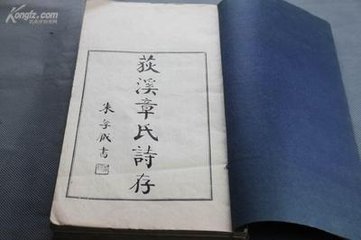 Kongfz.com
荻溪章氏詩存
朱孝臧書